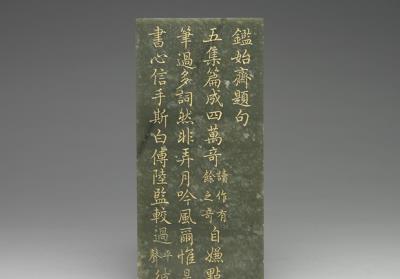 鑑始齋題句
五集篇成四萬奇讀作有餘之奇自嫌點
筆過多詞然非弄月吟風爾惟是
書心信手斯白傅陸監較過平聲